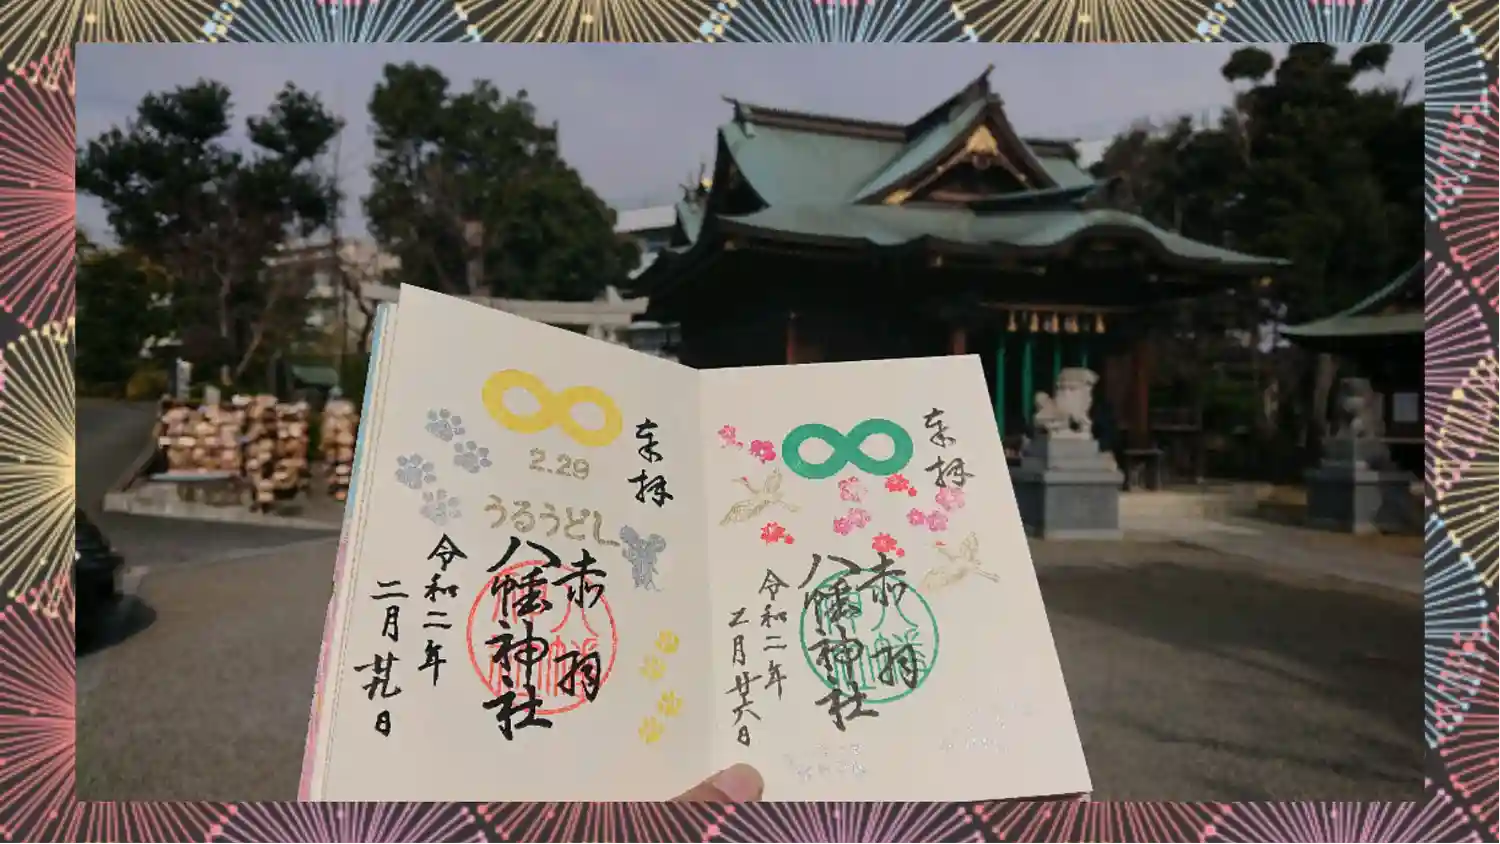 奉拝
2.29
うるうどし
赤羽
八幡神社
令和二年
二月廿九日
奉拝
赤羽
八幡神社
令和二年
乙月廿六日